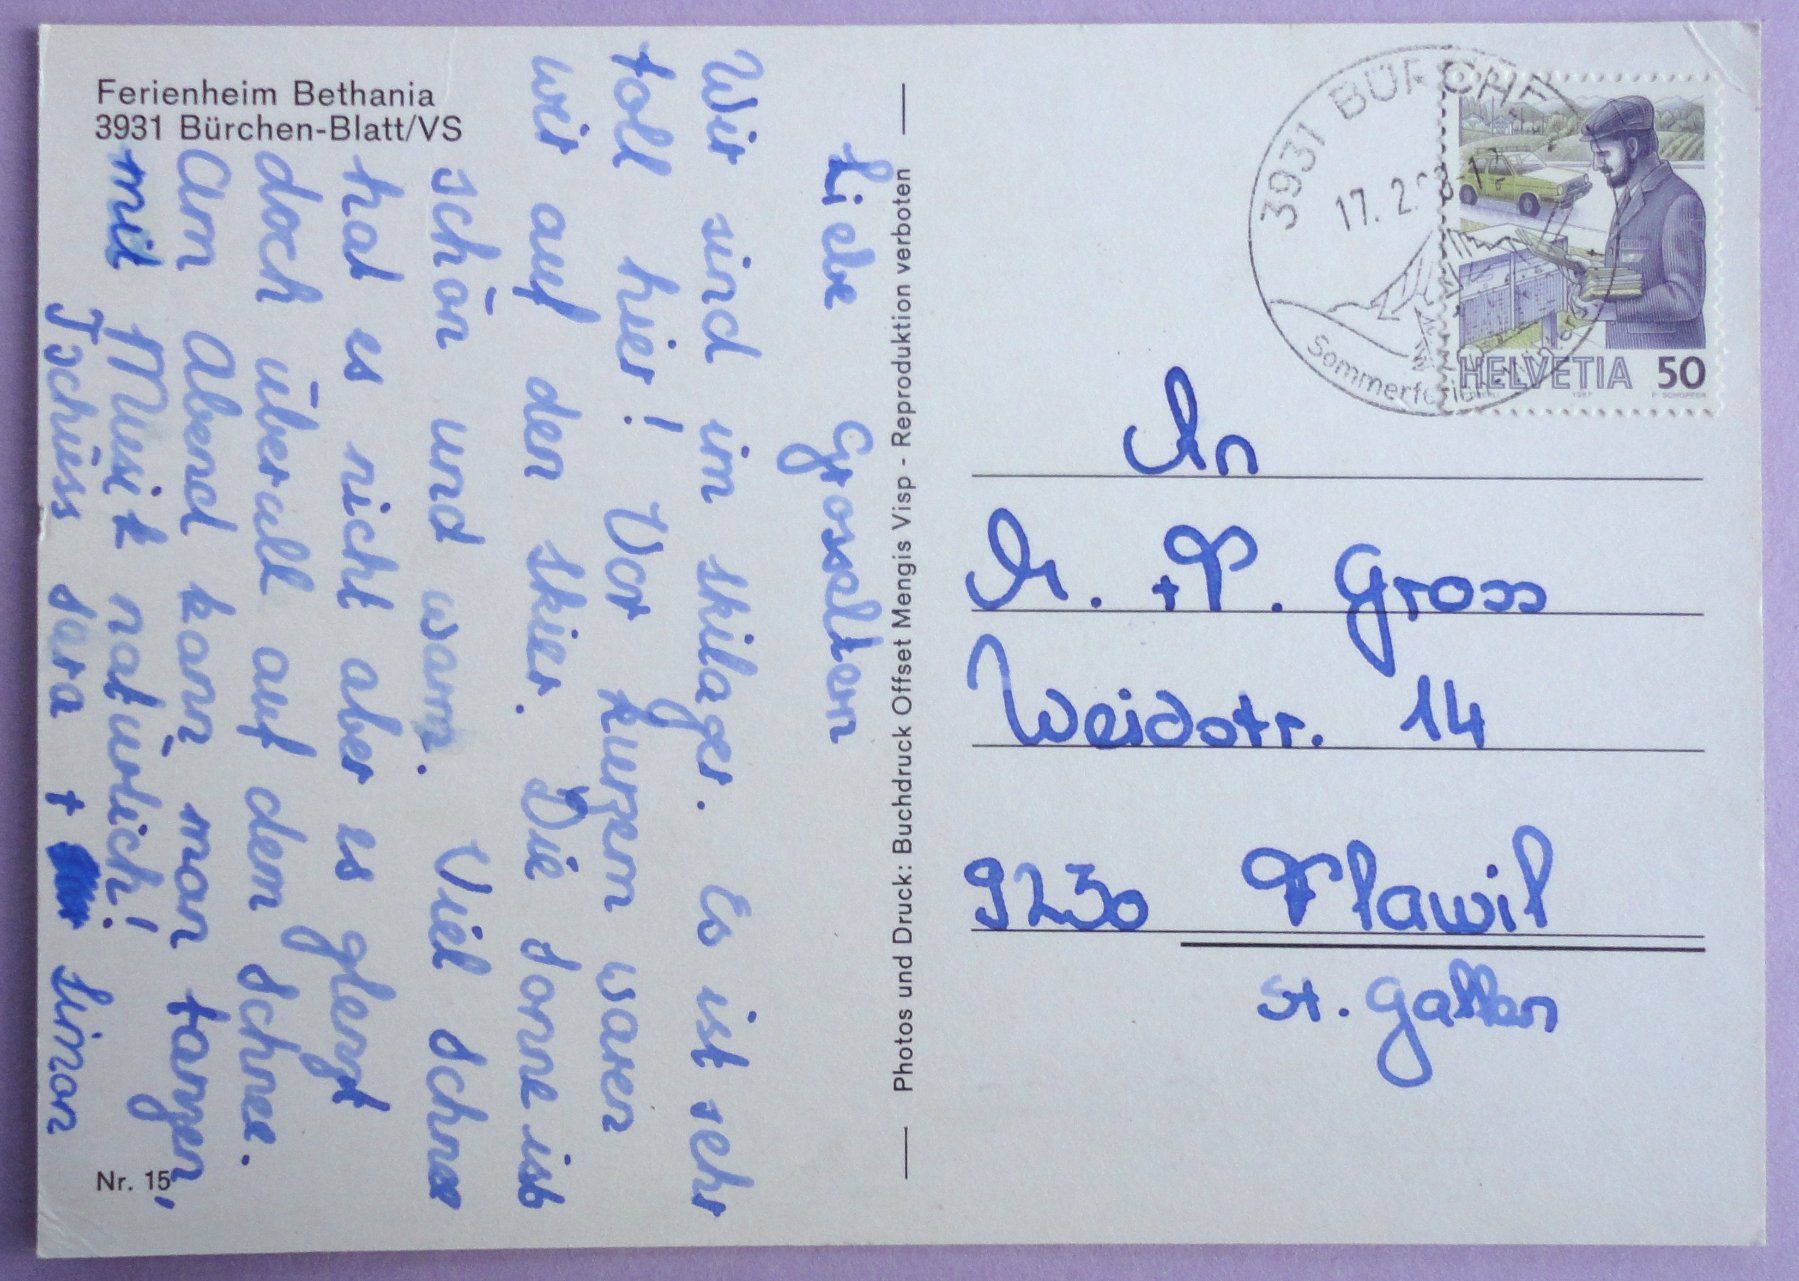 Ferienheim Bethania
3931 Bürchen-Blatt/VS
Liebe Grosseltern
Wir sind im skilager. Es ist sehr
toll hier! Vor kurzem waren
wir auf den skier. Die sonne ist
schön und warm. Viel schnee
hat es nicht aber es glenzt
doch überall auf dem schnee.
Am Abend kann man tanzen,
mit Musik natürlich!
Tschüss sara + simon
Nr. 15
Photos und Druck: Buchdruck Offset Mengis Visp - Reproduktion verboten
3931 BÜRCHE
17. 2.
Sommerferi
HELVETIA 50
1987 P. SCHOPFER
An
A. + P. Gross
Weidstr. 14
9230 Flawil
st. Gallen